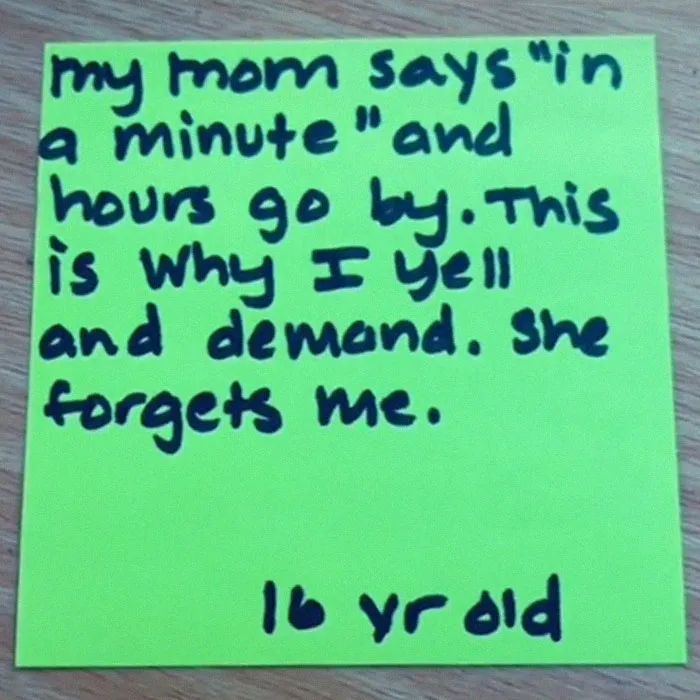 my mom says "in
a minute" and
hours go by. This
is why I yell
and demand. She
forgets me.
16 yr old